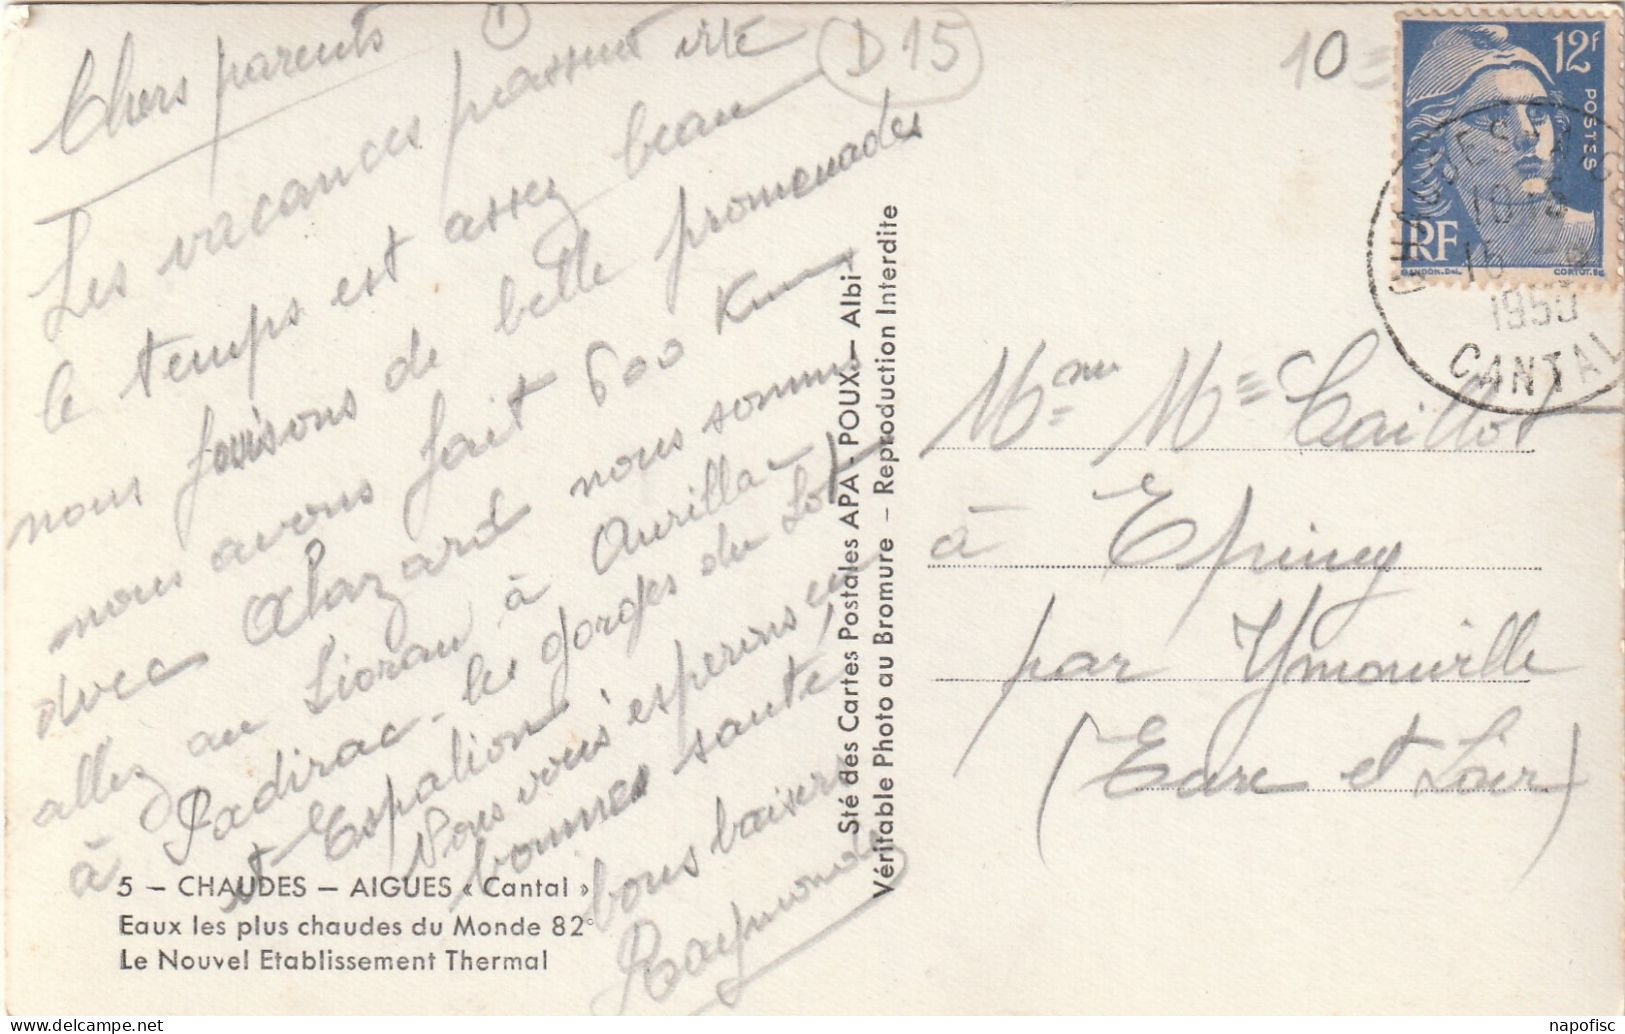 Chers parents
Les vacances passent vite
le temps est assez beau
nous faisons de belle promenades
nous avons fait 600 Kms
avec Alazard nous sommes
allez au Lioran à Aurillac
à Padirac - les gorges du Lot
et Espalion
Nous vous espérons en
bonnes santé,
bons baisers
Raymonde
1
D15
10
5 – CHAUDES – AIGUES « Cantal »
Eaux les plus chaudes du Monde 82°
Le Nouvel Etablissement Thermal
Sté des Cartes Postales APA - POUX – Albi
Véritable Photo au Bromure – Reproduction Interdite
12F
POSTES
RF
GANDON.Del.
CORTOT.Sc
CANTAL
Mr Mme Caillot
à Epincy
par Ymonville
(Eure et Loir)
napofisc